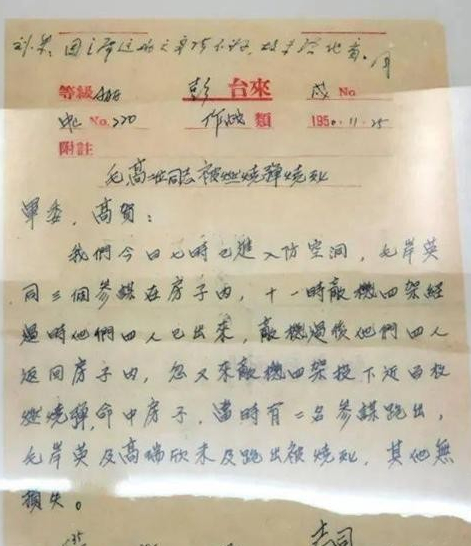 等級 彭 台來 No.
No. 220 作战 類 1950.11.25
附註
毛、高二位同志被燃燒彈燒死
軍委，高賀：
我們今日七時已進入防空洞，毛岸英
同三個參謀在房子內，十一時敵機四架經
過時他們四人已出來，敵機過後他們四人
返回房子內，忽又來敵機四架投下近百枚
燃燒彈，命中房子，當時有二名參謀跑出，
毛岸英及高瑞欣未及跑出被燒死，其他無
損失。